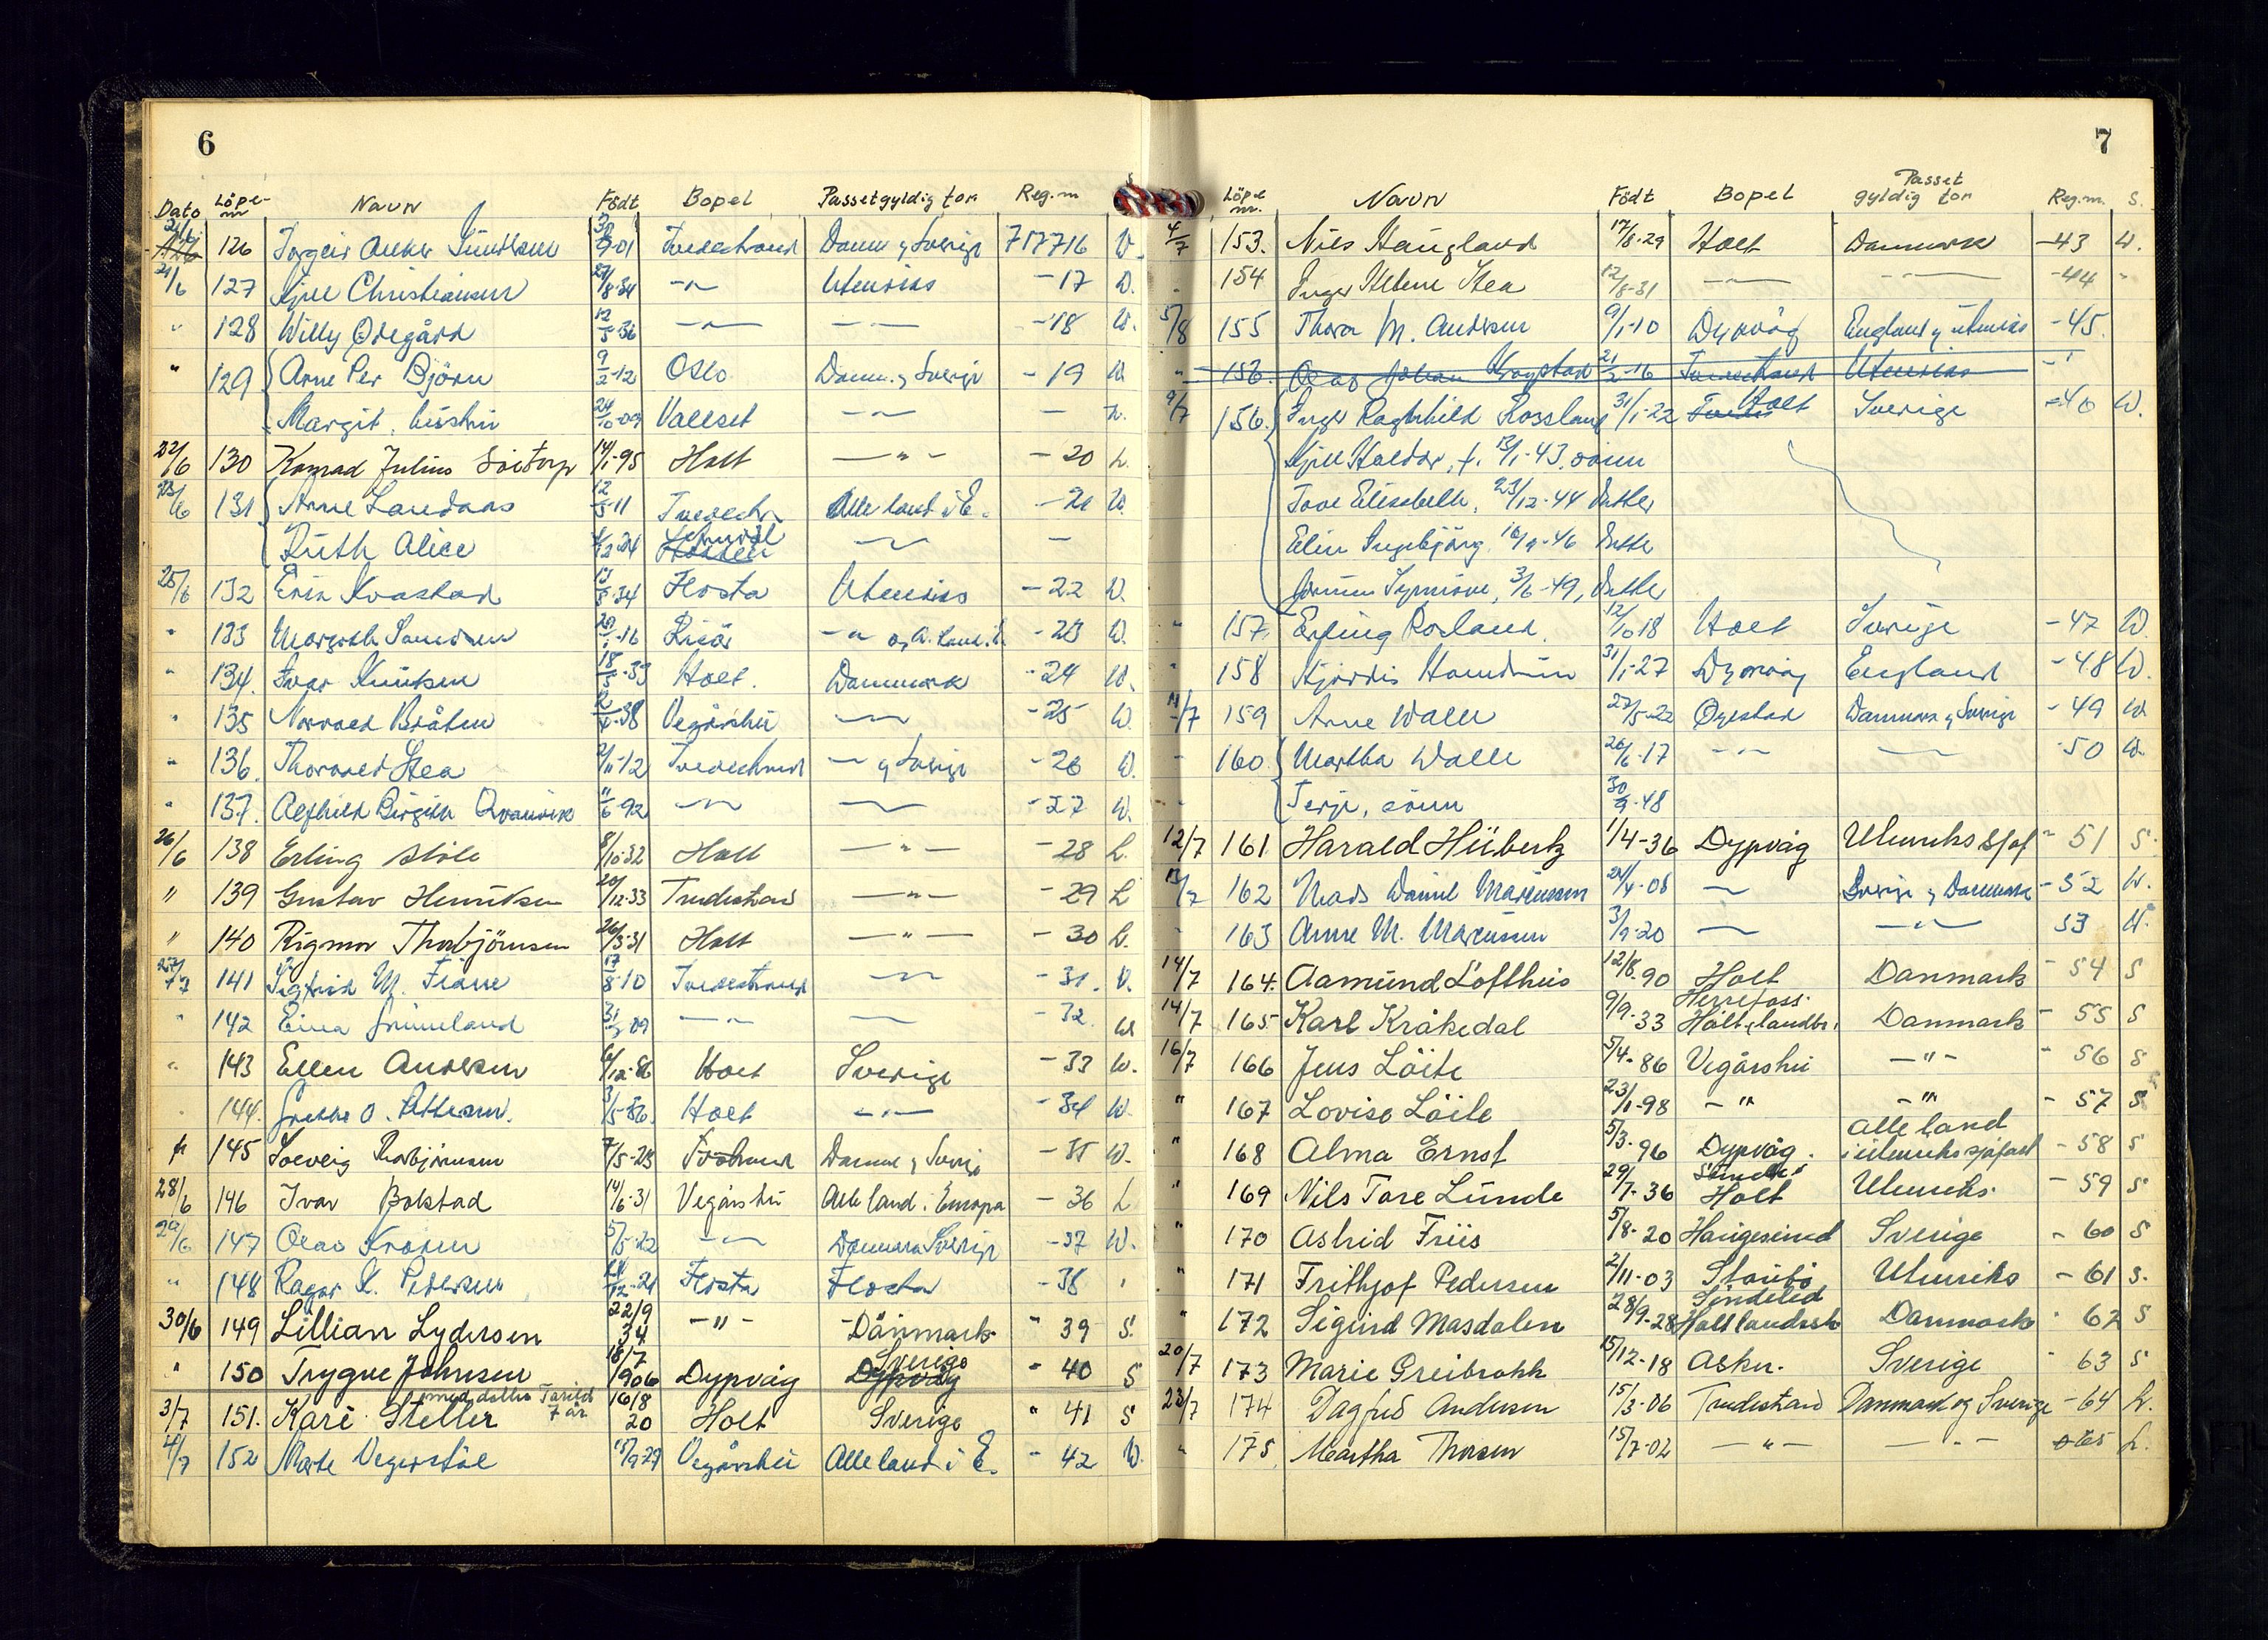 6
Dato Löpe-nr Navn Född Bopel Passet gyldig for Reg.nr
21/6 126 Torgeir Anker Gundersen 3/9-01 Tvedestrand Danm. & Sverige 717716 W.
21/6 127 Kjell Christiansen 8-34 -"- Utenriks -17 W.
" 128 Willy Ødegård 12/5-36 -"- -"- -18 W.
" 129 Arne Per Björn 9/2-12 Oslo Danm. & Sverige -19 W.
Margit, hustru 24/10-09 Vallset -"- - W.
22/6 130 Konrad Julius 14/1-95 Holt -"- -20 L.
23/6 131 Arne Landaas 12/5-11 Tvedestr. Alle land i E. -21 W.
Ruth Alice -"- -
25/6 132 Erik Kvastad -34 Flosta Utenriks -22 W.
" 133 Margoth -16 Risör -"- og A. land i E. -23 W.
" 134. Ivar Knutsen 18/5-33 Holt. Danmark -24 W.
" 135 Norvald Bråten 4-38 Vegårshei -"- -25 W.
" 136. Thorvald Stea 2/11-12 Tvedestrand -"- & Sverige -26 W.
" 137. Alfhild Birgith 11/6-92 -"- -"- -27 W.
26/6 138 Erling Støle 8/10-32 Holt -"- -28 L.
" 139 Gustav Henriksen 20/12-33 Tvedestrand -"- -29 L
" 140 Rigmor Thorbjörnsen 26/3-31 Holt -"- -30 L.
141 Sigfrid M. Fiane 17/8-10 Tvedestrand -"- -31. W.
" 142 Eina Grimeland 31/-09 -"- -"- -32. W
" 143 Ellen Andersen 6/12-86 Holt Sverige -33 W.
" 144. Grethe O. Pettersen. 3/5-36. Holt -"- -34 W.
" 145 Solveig Thorbjörnsen 7/5-23 Danm. & Sverige -35 W.
28/6 146 Ivar Bolstad 14/6-31 Vegårshei Alle land i Europa -36 L
29/6 147 Olav 5/5-22 -"- Danmark Sverige -37 W.
" 148 Ragnar K. Pedersen 12-21 Flosta Flosta -38 "
30/6 149 Lillian Lydersen 22/9 34 -"- Danmark " 39 S.
" 150 Trygve Johnsen 18/7 1906 Dypvåg Dypvåg Sverige - 40 S
3/7 151. Kari Steller med datter Torild 7 år 16/8 20 Holt Sverige " 41 S
4/7 152 Marte Vegerstöl 15/9-29 Vegårshei Alle land i E. - 42 W.
7
Löpe nr. Navn Född Bopel Passet gyldig for Reg.nr. S.
4/7 153. Nils Haugland 17/8-29 Holt Danmark -43 W.
" 154 Inger Helene Stea 12/8-31 -"- -"- -44 "
5/8 155 Thora M. Andersen 9/1-10 Dypvåg England & utenriks -45.
" 156. Olav Johan 21/2-16 Tvedestrand Utenriks -"
9/7 156. Inger Ragnhild Rossland 31/1-22 Holt Sverige -46 W.
Kjell Haldor, f. 13/1-43, sönn
Tove Elisabeth, 23/12-44 datter
Elin Ingebjörg 10/9-46 datter
Synnöve, 3/6-49, datter
" 157. Erling Rosland. 12/10 18 Holt Sverige -47 W.
" 158 Hjördis 31/1-27 Dypvåg England -48 W.
11/7 159 Arne Walle 27/5-22 Øyestad Danmark & Sverige -49 W.
- 160 Martha Walle 26/6-17 -"- -"- -50 W.
Terje, sönn 30/9-48
12/7 161 Harald Hübertz 1/4-36 Dypvåg Utenriks sjøf " 51 S.
13/7 162 Mads Daniel Marcussen 24/4-08 -"- Sverige & Danmark -52 W.
- 163 Anne M. Marcussen 3/9-20 -"- -"- 53 W.
14/7 164. Aamund Lofthus 12/8.90 Holt Danmark - 54 S
14/7 165 Karl Kråkedal 9/9-33 Herrefoss. Holt landbr. Danmark - 55 S
16/7 166 Jens Löite 5/4-86 Vegårshei -"- " 56 S
" 167 Lovise Löite 23/1-98 -"- -"- - 57 S
" 168 Alma Ernst 5/3-96 Dypvåg. Alle land i utenriks sjøfart - 58 S
" 169 Nils Tore Lunde 29/7-36 Holt Utenriks. - 59 S
" 170 Astrid Friis 5/8-20 Haugesund Sverige - 60 S
" 171 Frithjof Pedersen 2/11-03 Staubö Utenriks - 61 S.
" 172 Sigurd Masdalen 28/9-28 Söndeled Holt landssk Danmark " 62 S
20/7 173 Marie Greibrokk 15/12-18 Asker. Sverige " 63 S
23/7 174 Dagfred Andersen 15/3-06 Tvedestrand Danmark og Sverige -64 L.
" 175 Martha Thorsen 15/7-02 -"- -"- 65 L.